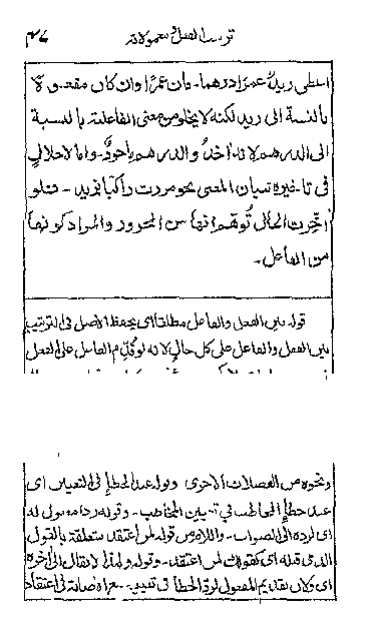 ترتيب الفعل ومعمولاته
اعطى زيدٌ عمرًا درهما - فان عمرًا وان كان مفعولا
بالنسبة الى زيد لكنه لا يخلو من معنى الفاعلية بالنسبة
الى الدرهم لانه اخذٌ والدرهم ماخوذٌ - واما لاخلالٍ
فى تاخيره ببيان المعنى نحو مررت راكبًا بزيد - فلو
اخّرت الحال تُوهّم انها من المجرور والمراد كونها
من الفاعل -
قوله بين الفعل والفاعل مطلقا اى يحفظ الاصل فى الترتيب
بين الفعل والفاعل على كل حالٍ لانه لو قُدّم الفاعل على الفعل
ونحوه من الفضلات الاخرى وقوله عند الخطإ فى التعيين اى
عند خطإ المخاطب فى تعيين المخاطب - وقوله ردا مفعول له
اى لرده الى الصواب - واللام من قوله لمن اعتقد متعلقة بالقول
الذى قبله اى كقولك لمن اعتقد - وقوله ولهذا لا يقال الى اخره
اى ولان تقديم المفعول لردّ الخطأ فى تعيين